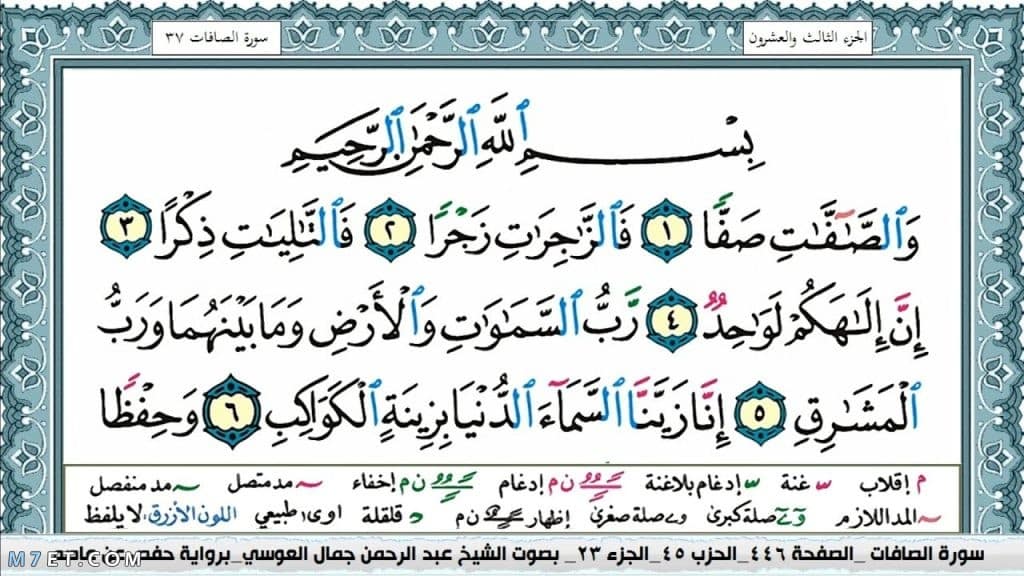 الجزء الثالث والعشرون
سورة الصافات ٣٧
بِسْمِ ٱللَّهِ ٱلرَّحْمَٰنِ ٱلرَّحِيمِ
وَٱلصَّٰٓفَّٰتِ صَفًّا ١ فَٱلزَّٰجِرَٰتِ زَجْرًا ٢ فَٱلتَّٰلِيَٰتِ ذِكْرًا ٣
إِنَّ إِلَٰهَكُمْ لَوَٰحِدٌ ٤ رَّبُّ ٱلسَّمَٰوَٰتِ وَٱلْأَرْضِ وَمَا بَيْنَهُمَا وَرَبُّ
ٱلْمَشَٰرِقِ ٥ إِنَّا زَيَّنَّا ٱلسَّمَآءَ ٱلدُّنْيَا بِزِينَةٍ ٱلْكَوَاكِبِ ٦ وَحِفْظًا
م إقلاب غنة إدغام بلاغنة ن م إدغام ن م إخفاء مد متصل مد منفصل
المد اللازم صلة كبرى صلة صغرى إظهار ن م قلقلة طبيعي اللون الأزرق لا يلفظ
سورة الصافات _الصفحة ٤٤٦_الحزب ٤٥_الجزء ٢٣_ بصوت الشيخ عبد الرحمن جمال العوسي_برواية حفص عن عاصم
M7ET.COM